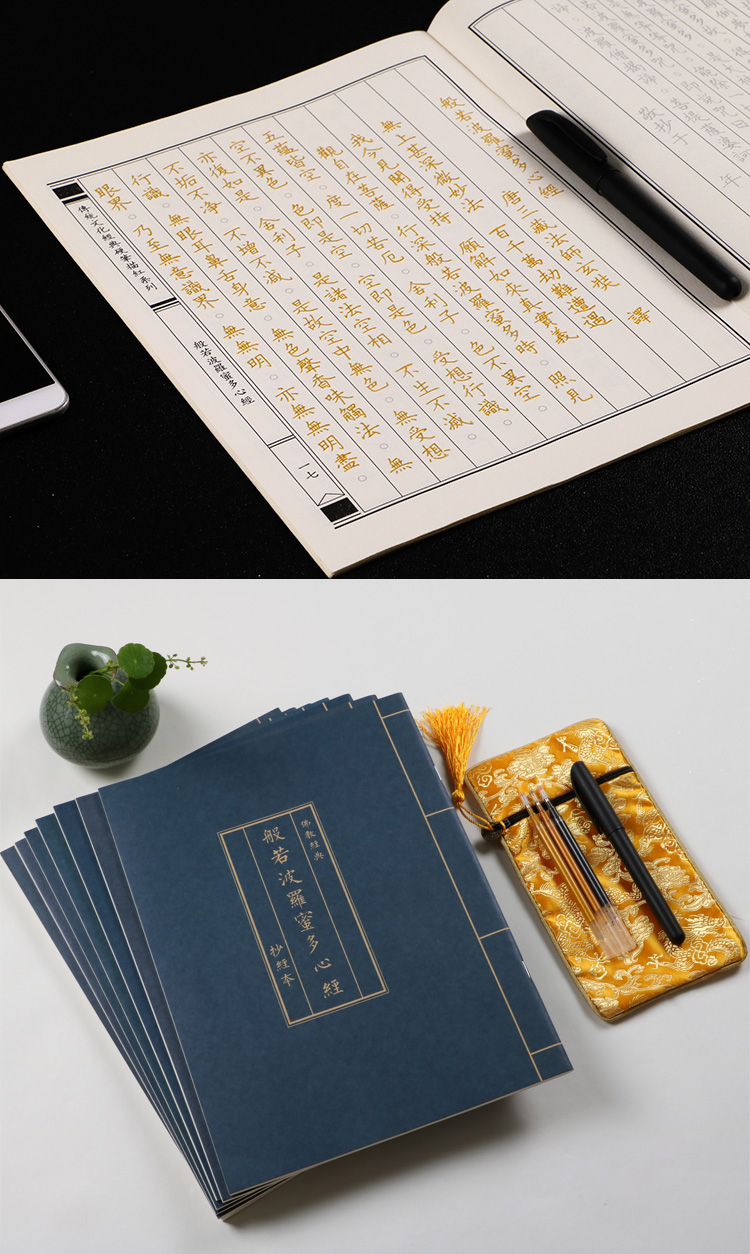 敬抄于　年
般若波羅蜜多心經
唐三藏法師玄奘　譯
無上甚深微妙法　百千萬劫難遭遇
我今見聞得受持　願解如來真實義
觀自在菩薩。行深般若波羅蜜多時。照見
五蘊皆空。度一切苦厄。舍利子。色不異空。
空不異色。色即是空。空即是色。受想行識。
亦復如是。舍利子。是諸法空相。不生不滅。
不垢不淨。不增不減。是故空中無色。無受想
行識。無眼耳鼻舌身意。無色聲香味觸法。無
眼界。乃至無意識界。無無明。亦無無明盡。
傳統文化經典硬筆描紅系列
般若波羅蜜多心經
一七
佛教經典
般若波羅蜜多心經
抄經本